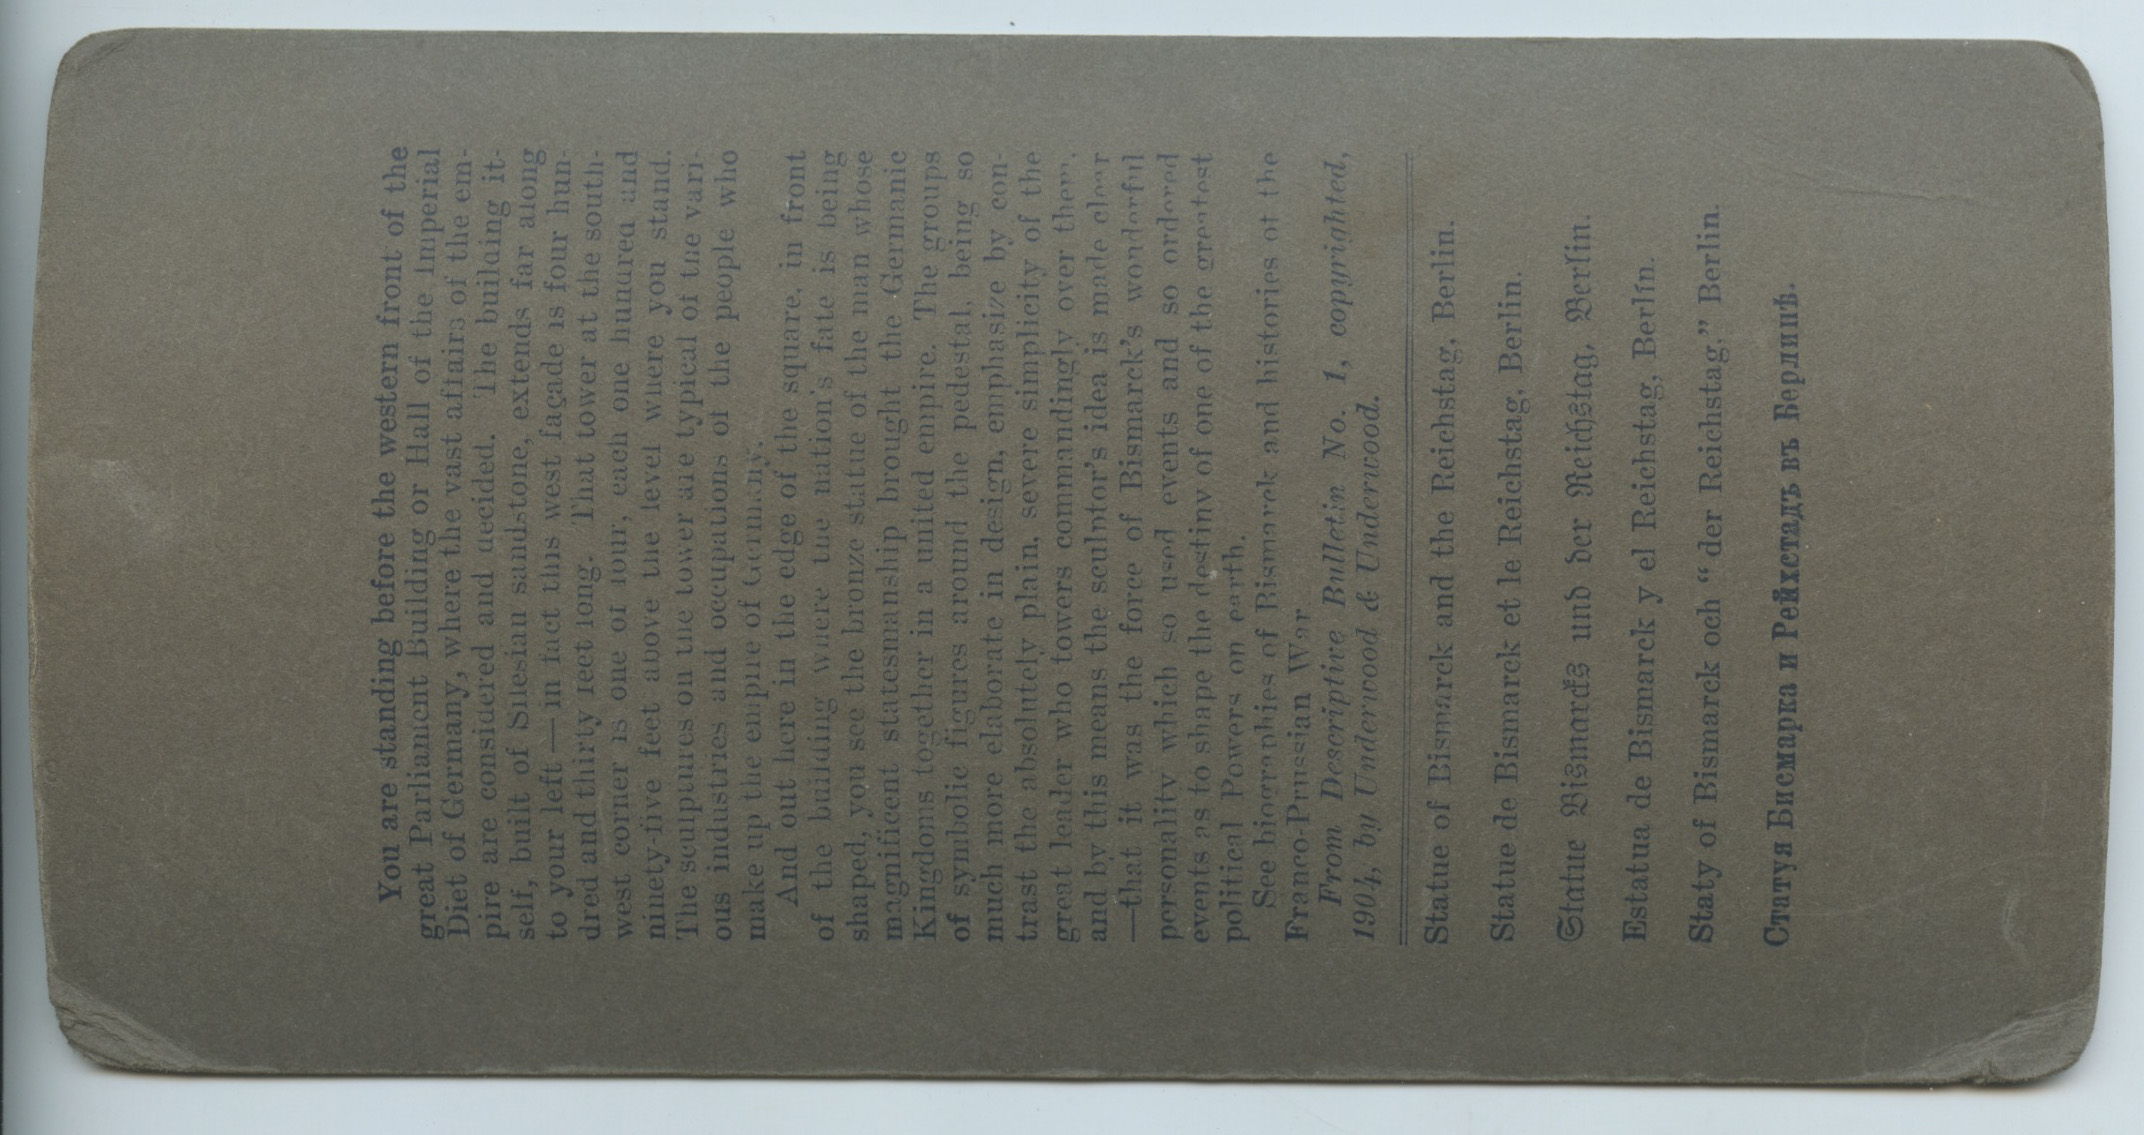 You are standing before the western front of the
great Parliament Building or Hall of the Imperial
Diet of Germany, where the vast affairs of the em-
pire are considered and decided. The building it-
self, built of Silesian sandstone, extends far along
to your left—in fact this west façade is four hun-
dred and thirty feet long. That tower at the south-
west corner is one of four, each one hundred and
ninety-five feet above the level where you stand.
The sculptures on the tower are typical of the vari-
ous industries and occupations of the people who
make up the empire of Germany.
And out here in the edge of the square, in front
of the building where the nation's fate is being
shaped, you see the bronze statue of the man whose
magnificent statesmanship brought the Germanic
Kingdoms together in a united empire. The groups
of symbolic figures around the pedestal, being so
much more elaborate in design, emphasize by con-
trast the absolutely plain, severe simplicity of the
great leader who towers commandingly over them,
and by this means the sculptor's idea is made clear
—that it was the force of Bismarck's wonderful
personality which so used events and so ordered
events as to shape the destiny of one of the greatest
political Powers on earth.
See biographies of Bismarck and histories of the
Franco-Prussian War
From Descriptive Bulletin No. 1, copyrighted,
1904, by Underwood & Underwood.
Statue of Bismarck and the Reichstag, Berlin.
Statue de Bismarck et le Reichstag, Berlin.
Statue Bismarcks und der Reichstag, Berlin.
Estatua de Bismarck y el Reichstag, Berlín.
Staty of Bismarck och “der Reichstag,” Berlin.
Статуя Бисмарка и Рейхстадъ въ Берлинѣ.